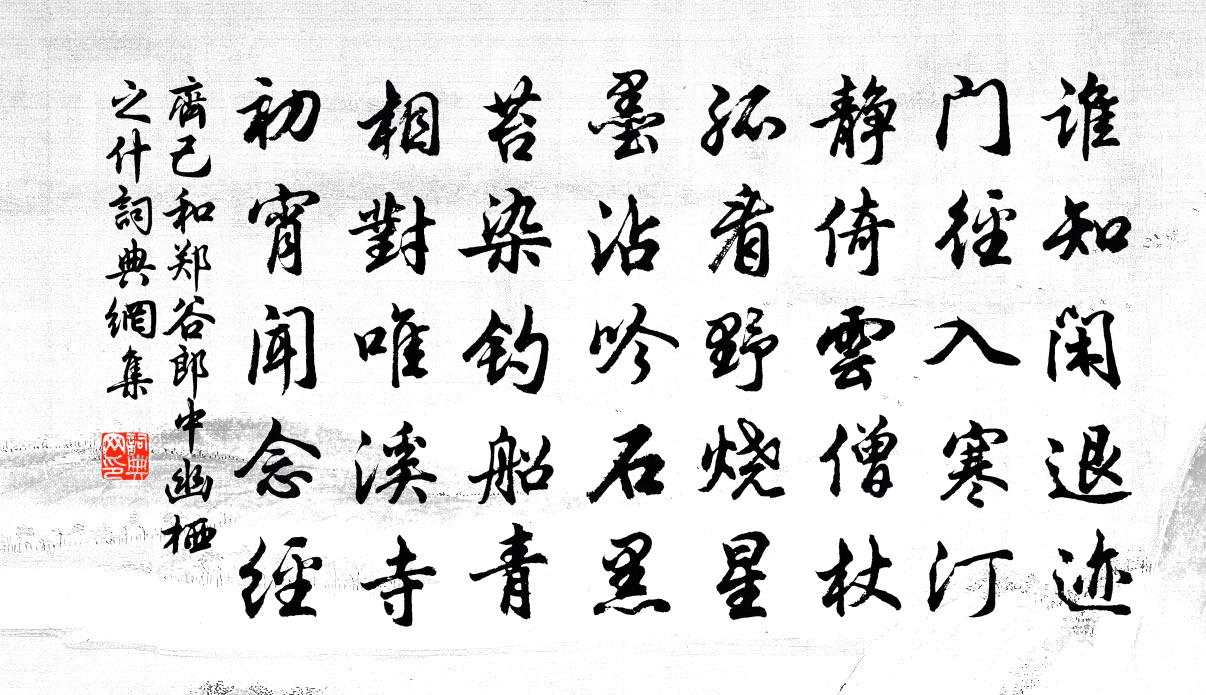 谁知闲退迹
門徑入寒汀
静倚雲僧杖
孤看野烧星
墨沾吟石黑
苔染钓船青
相對唯溪寺
初宵闻念經
齊己和郑谷郎中幽栖
之什詞典網集
詞典
网印